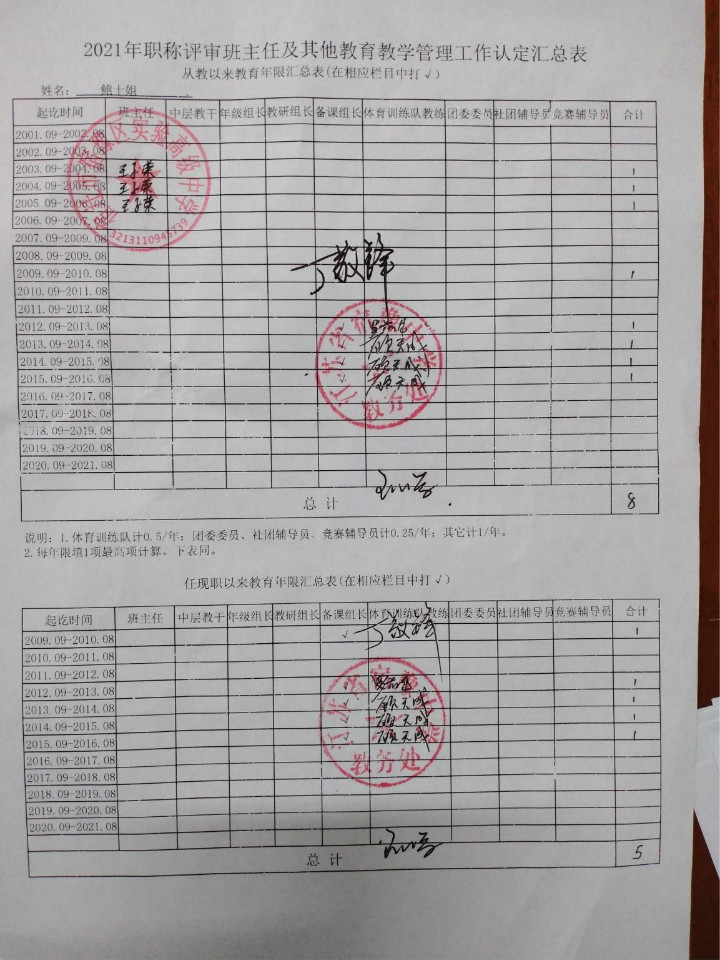 2021年职称评审班主任及其他教育教学管理工作认定汇总表
从教以来教育年限汇总表(在相应栏目中打√)
姓名: 鲍士姐
起讫时间 班主任 中层教干 年级组长 教研组长 备课组长 体育训练队教练 团委委员 社团辅导员 竞赛辅导员 合计
2001.09-2002.08
2002.09-2003.08
2003.09-2004.08 1
2004.09-2005.08 1
2005.09-2006.08 1
2006.09-2007.08
2007.09-2009.08
2008.09-2009.08
丁敬锋
2009.09-2010.08 1
2010.09-2011.08
2011.09-2012.08
2012.09-2013.08 √ 1
2013.09-2014.08 √ 顾天成 1
2014.09-2015.08 √ 顾天成 1
2015.09-2016.08 √ 顾天成 1
2016.09-2017.08
2017.09-2018.08
2018.09-2019.08
2019.09-2020.08
2020.09-2021.08
总 计 8
3213110945739
教务处
说明: 1.体育训练队计0.5/年; 团委委员、社团辅导员、竞赛辅导员计0.25/年; 其它计1/年。
2.每年限填1项最高项计算。下表同。
任现职以来教育年限汇总表(在相应栏目中打√)
起讫时间 班主任 中层教干 年级组长 教研组长 备课组长 体育训练队教练 团委委员 社团辅导员 竞赛辅导员 合计
2009.09-2010.08 √ 丁敬锋 1
2010.09-2011.08
2011.09-2012.08
2012.09-2013.08 √ 1
2013.09-2014.08 √ 顾天成 1
2014.09-2015.08 √ 顾天成 1
2015.09-2016.08 √ 顾天成 1
2016.09-2017.08
2017.09-2018.08
2018.09-2019.08
2019.09-2020.08
2020.09-2021.08
教务处
总 计 5